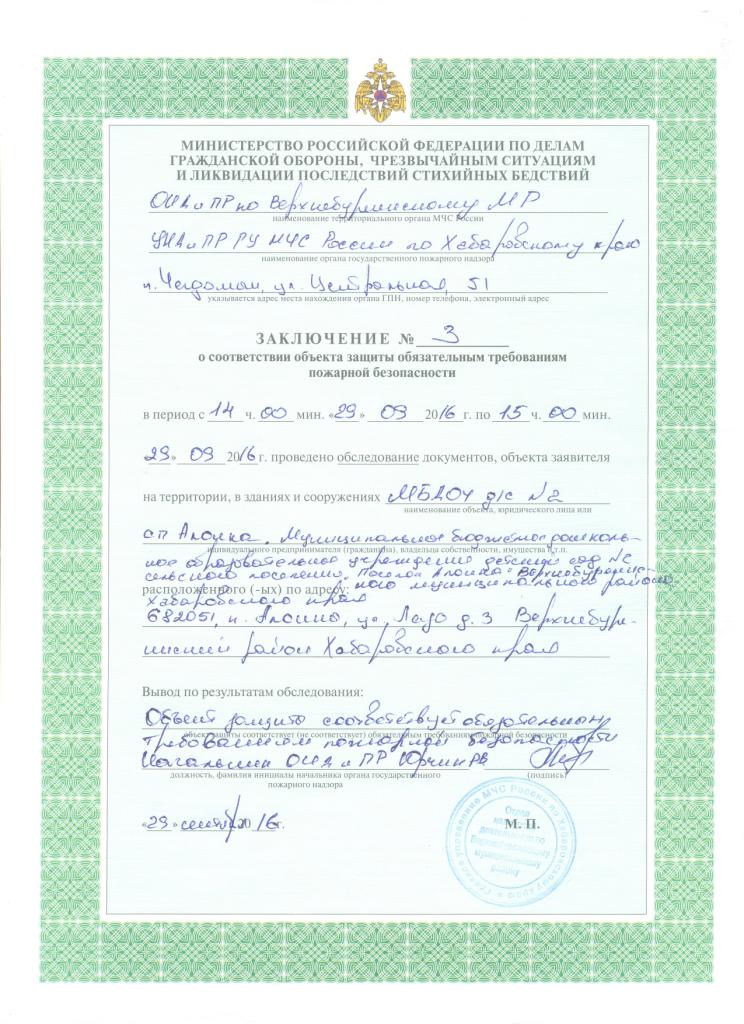 МИНИСТЕРСТВО РОССИЙСКОЙ ФЕДЕРАЦИИ ПО ДЕЛАМ
ГРАЖДАНСКОЙ ОБОРОНЫ, ЧРЕЗВЫЧАЙНЫМ СИТУАЦИЯМ
И ЛИКВИДАЦИИ ПОСЛЕДСТВИЙ СТИХИЙНЫХ БЕДСТВИЙ
ОНД и ПР по Верхнебуреинскому МР
наименование территориального органа МЧС России
УНД и ПР ГУ МЧС России по Хабаровскому краю
наименование органа государственного пожарного надзора
п. Чегдомын, ул. Центральная, 51
указывается адрес места нахождения органа ГПН, номер телефона, электронный адрес
ЗАКЛЮЧЕНИЕ № 3
о соответствии объекта защиты обязательным требованиям
пожарной безопасности
в период с 14 ч. 00 мин. «29» 09 2016 г. по 15 ч. 00 мин.
29 » 09 2016 г. проведено обследование документов, объекта заявителя
на территории, в зданиях и сооружениях МБДОУ д/с №2
наименование объекта, юридического лица или
сп Алонка. Муниципальное бюджетное дошколь-
индивидуального предпринимателя (гражданина), владельца собственности, имущества и т.п.
ное образовательное учреждение детский сад №2
сельского поселения "Поселок Алонка" Верхнебуреинс-
расположенного (-ых) по адресу: кого муниципального района
Хабаровского края
682051, п. Алонка, ул. Ладо д. 3 Верхнебуре-
инский район Хабаровского края
Вывод по результатам обследования:
Объект защиты соответствует обязательным
объект защиты соответствует (не соответствует) обязательным требованиям пожарной безопасности
требованиям пожарной безопасности
Начальник ОНД и ПР
должность, фамилия инициалы начальника органа государственного
пожарного надзора
(подпись)
«29» сентября 2016 г.
М. П.
Отдел
надзорной
деятельности по
Верхнебуреинскому
муниципальному
району